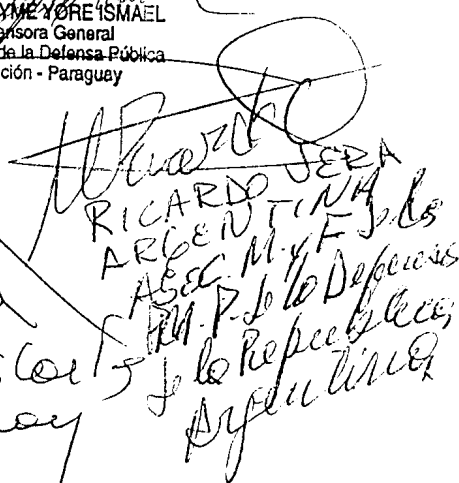 YME YORE ISMAEL
ensora General
de la Defensa Pública
ción - Paraguay
RICARDO
ARGENTINA
ASEC. M. y F. de los
M.P. de la Defensa
de la Republica
Argentina